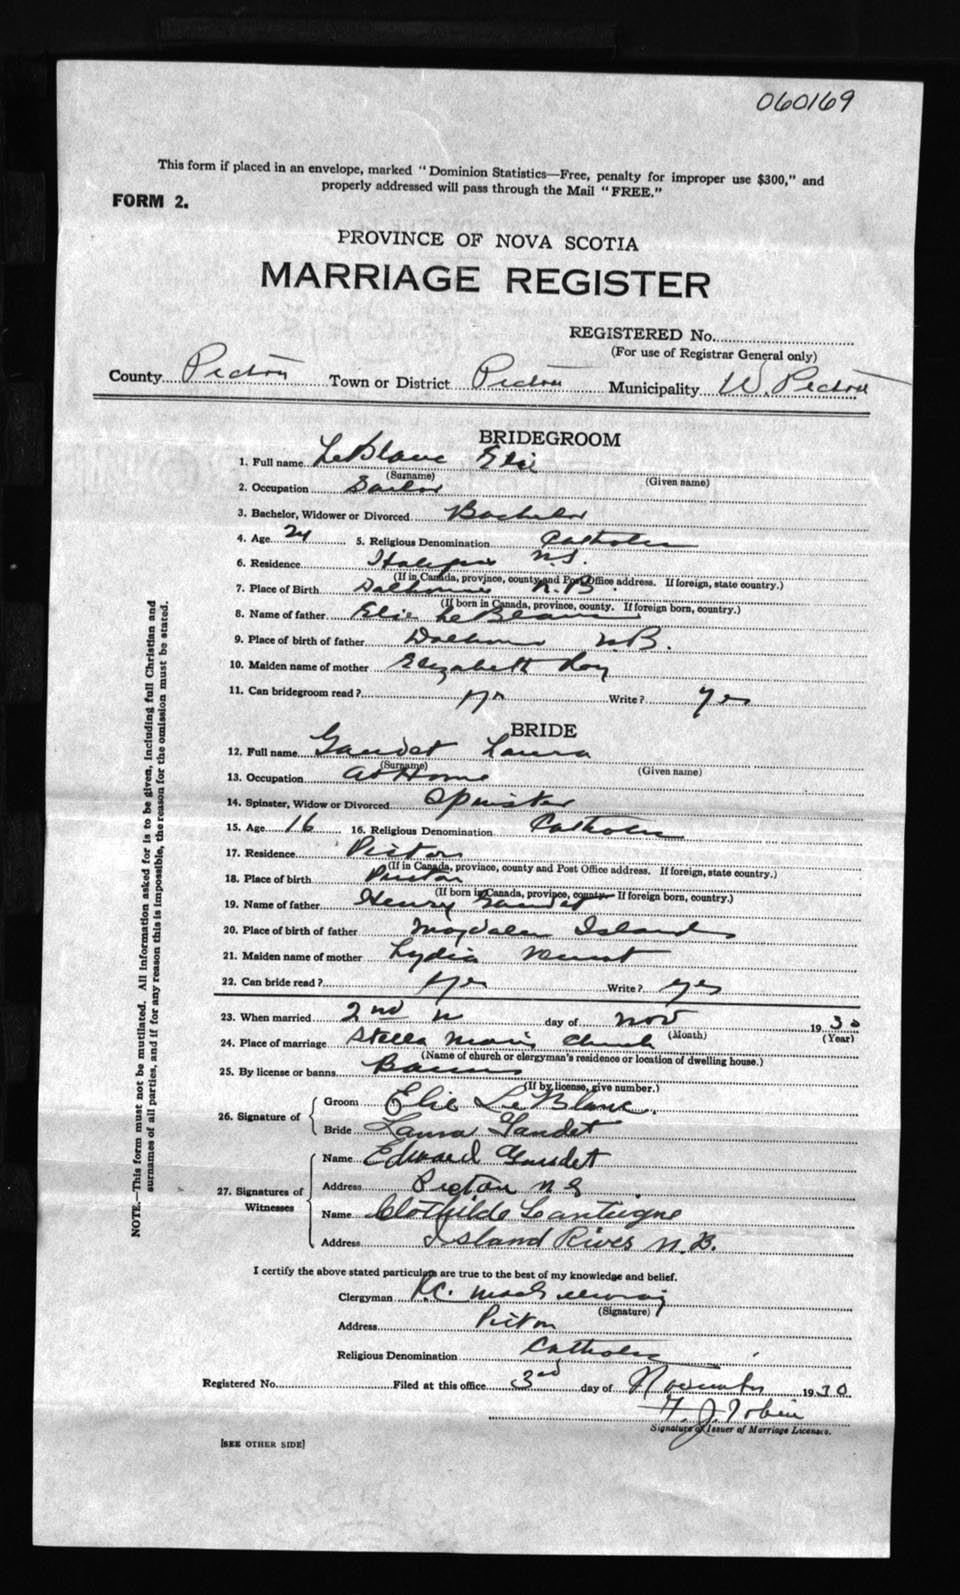 060169
This form if placed in an envelope, marked "Dominion Statistics—Free, penalty for improper use $300," and
properly addressed will pass through the Mail "FREE."
FORM 2.
PROVINCE OF NOVA SCOTIA
MARRIAGE REGISTER
REGISTERED No.
(For use of Registrar General only)
County Pictou Town or District Pictou Municipality W. Pictou
BRIDEGROOM
1. Full name LeBlanc Elie
(Surname) (Given name)
2. Occupation Sailor
3. Bachelor, Widower or Divorced Bachelor
4. Age 24 5. Religious Denomination Catholic
6. Residence Halifax N.S.
(If in Canada, province, county and Post Office address. If foreign, state country.)
7. Place of Birth Dalhousie N.B.
(If born in Canada, province, county. If foreign born, country.)
8. Name of father Elie LeBlanc
9. Place of birth of father Dalhousie N.B.
10. Maiden name of mother Elizabeth Roy
11. Can bridegroom read? yes Write? yes
BRIDE
12. Full name Gaudet Laura
(Surname) (Given name)
13. Occupation At Home
14. Spinster, Widow or Divorced Spinster
15. Age 16 16. Religious Denomination Catholic
17. Residence Pictou
(If in Canada, province, county and Post Office address. If foreign, state country.)
18. Place of birth Pictou
(If born in Canada, province, county. If foreign born, country.)
19. Name of father Henry Gaudet
20. Place of birth of father Magdalen Islands
21. Maiden name of mother Lydia
22. Can bride read? yes Write? yes
23. When married 2nd day of Nov 1930
(Month) (Year)
24. Place of marriage Stella Maris Church
(Name of church or clergyman's residence or location of dwelling house.)
25. By license or banns Banns
(If by license, give number.)
26. Signature of
Groom Elie LeBlanc.
Bride Laura Gaudet
27. Signatures of Witnesses
Name Edward Gaudet
Address Pictou N S
Name Clothilde Lanteigne
Address Island River N.B.
I certify the above stated particulars are true to the best of my knowledge and belief.
Clergyman R.C. MacGillivray
(Signature)
Address Pictou
Religious Denomination Catholic
Registered No. Filed at this office 3rd day of November 1930
F. J. Tobin
Signature of Issuer of Marriage Licenses.
[SEE OTHER SIDE]
NOTE.—This form must not be mutilated. All information asked for is to be given, including full Christian and
surnames of all parties, and if for any reason this is impossible, the reason for the omission must be stated.